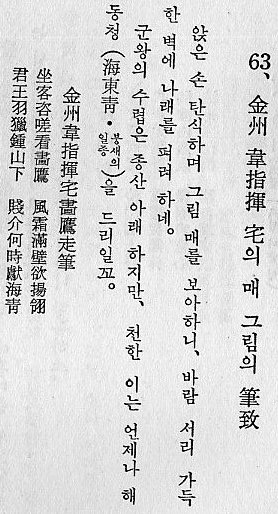 63、金州 韋指揮 宅의 매 그림의 筆致
앉은 손 탄식하며 그림 매를 보아하니、바람 서리 가득
한 벽에 나래를 펴려 하네。
군왕의 수렵은 종산 아래 하지만、천한 이는 언제나 해
동청(海東靑·붕새의 일종)을 드리일꼬。
金州韋指揮宅畵鷹走筆
坐客咨嗟看畵鷹 風霜滿壁欲揚翎
君王羽獵鍾山下 賤介何時獻海靑